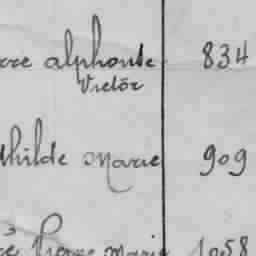 rre alphonse 834
Victor
thilde Marie 909
é Pierre Marie 1058